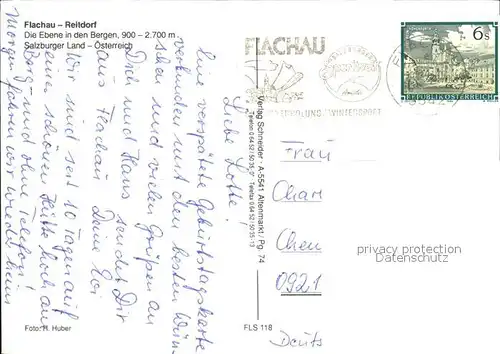 Flachau – Reitdorf
Die Ebene in den Bergen, 900 – 2.700 m
Salzburger Land – Österreich
FLACHAU
ERHOLUNG / WINTERSPORT
6 S
REPUBLIK ÖSTERREICH
Liebe Lotte!
Eine verspätete Geburtstagskarte
verbunden mit den besten Wün-
schen und vielen Grüßen an
Dich und Hans sendet Dir
aus Flachau Deine
Wir sind seit 10 Tagen auf
einer schönen Hütte hoch am
Berg und ohne Telefon!
Morgen fahren wir wieder heim
Verlag Schneider · A-5541 Altenmarkt / Pg. 74
Frau
Char
Chen
0921
Deuts
privacy protection
Datenschutz
Foto: H. Huber
FLS 118